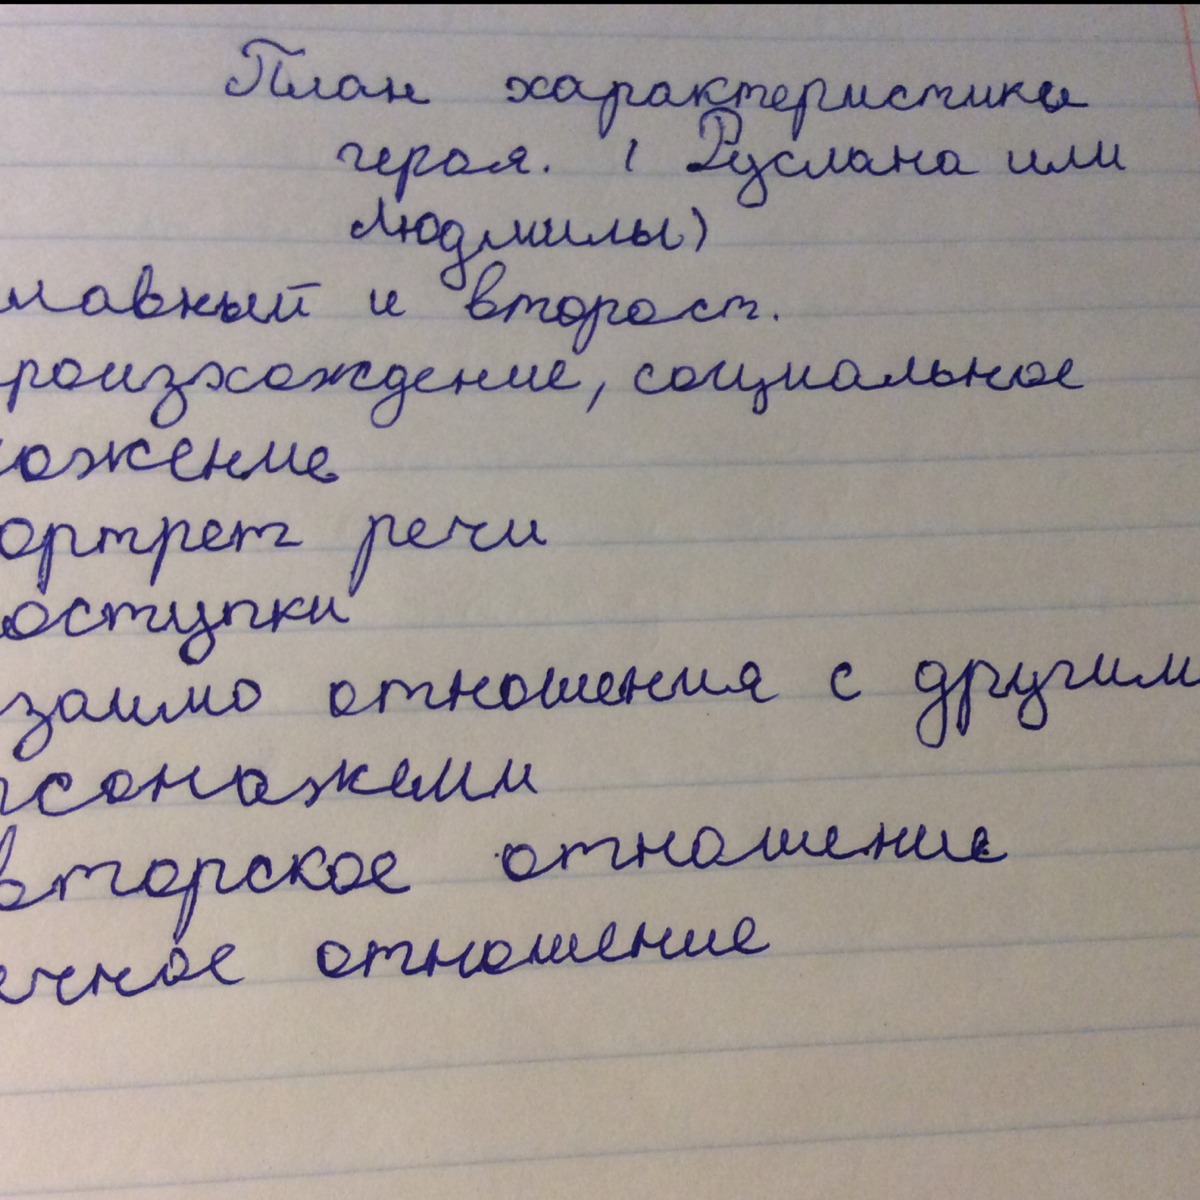 План характеристики
героя. ( Руслана или
Людмилы)
лавный и второст.
роизхождение, социальное
ожение
ортрет речи
оступки
заимо отношения с другим
рсонажеми
вторское отношение
ечное отношение